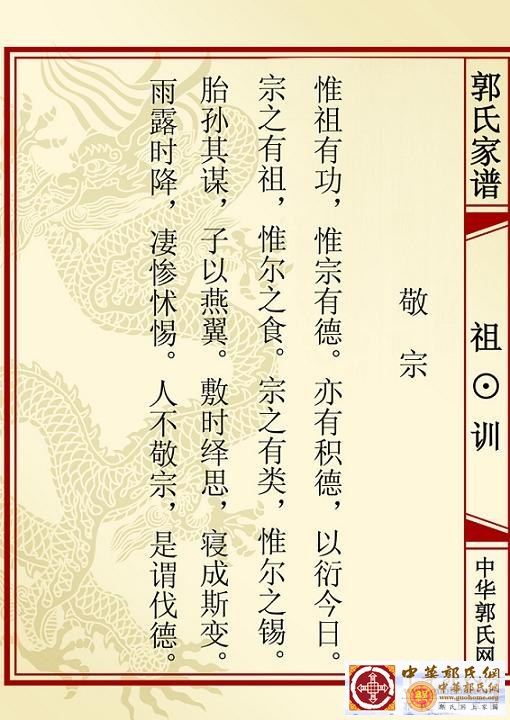 郭氏家谱
祖⊙训
中华郭氏网
敬宗
惟祖有功，惟宗有德。亦有积德，以衍今日。
宗之有祖，惟尔之食。宗之有类，惟尔之锡。
胎孙其谋，子以燕翼。敷时绎思，寝成斯变。
雨露时降，凄惨怵惕。人不敬宗，是谓伐德。
中華郭氏網
www.guohome.org
中華郭氏網